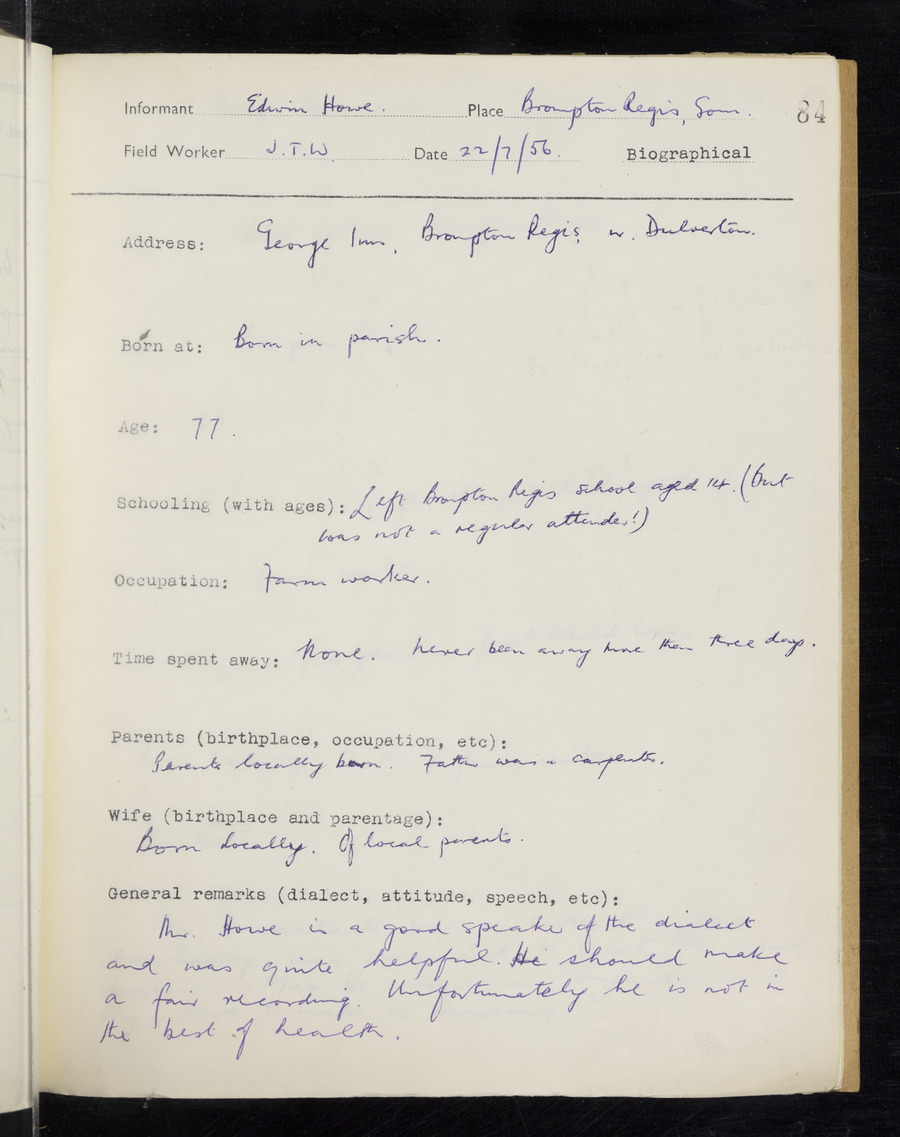 Informant Edwin Howe. Place Brompton Regis, Som. 84
Field Worker J.T.W. Date 22/7/56. Biographical
Address: George Inn, Brompton Regis, nr. Dulverton.
Born at: Born in parish.
Age: 77.
Schooling (with ages): Left Brompton Regis school aged 14. (but
was not a regular attender!)
Occupation: Farm worker.
Time spent away: None. Never been away more than three days.
Parents (birthplace, occupation, etc):
Parents locally born. Father was a carpenter.
Wife (birthplace and parentage):
Born locally. Of local parents.
General remarks (dialect, attitude, speech, etc):
Mr. Howe is a good speaker of the dialect
and was quite helpful. He should make
a fair recording. Unfortunately he is not in
the best of health.